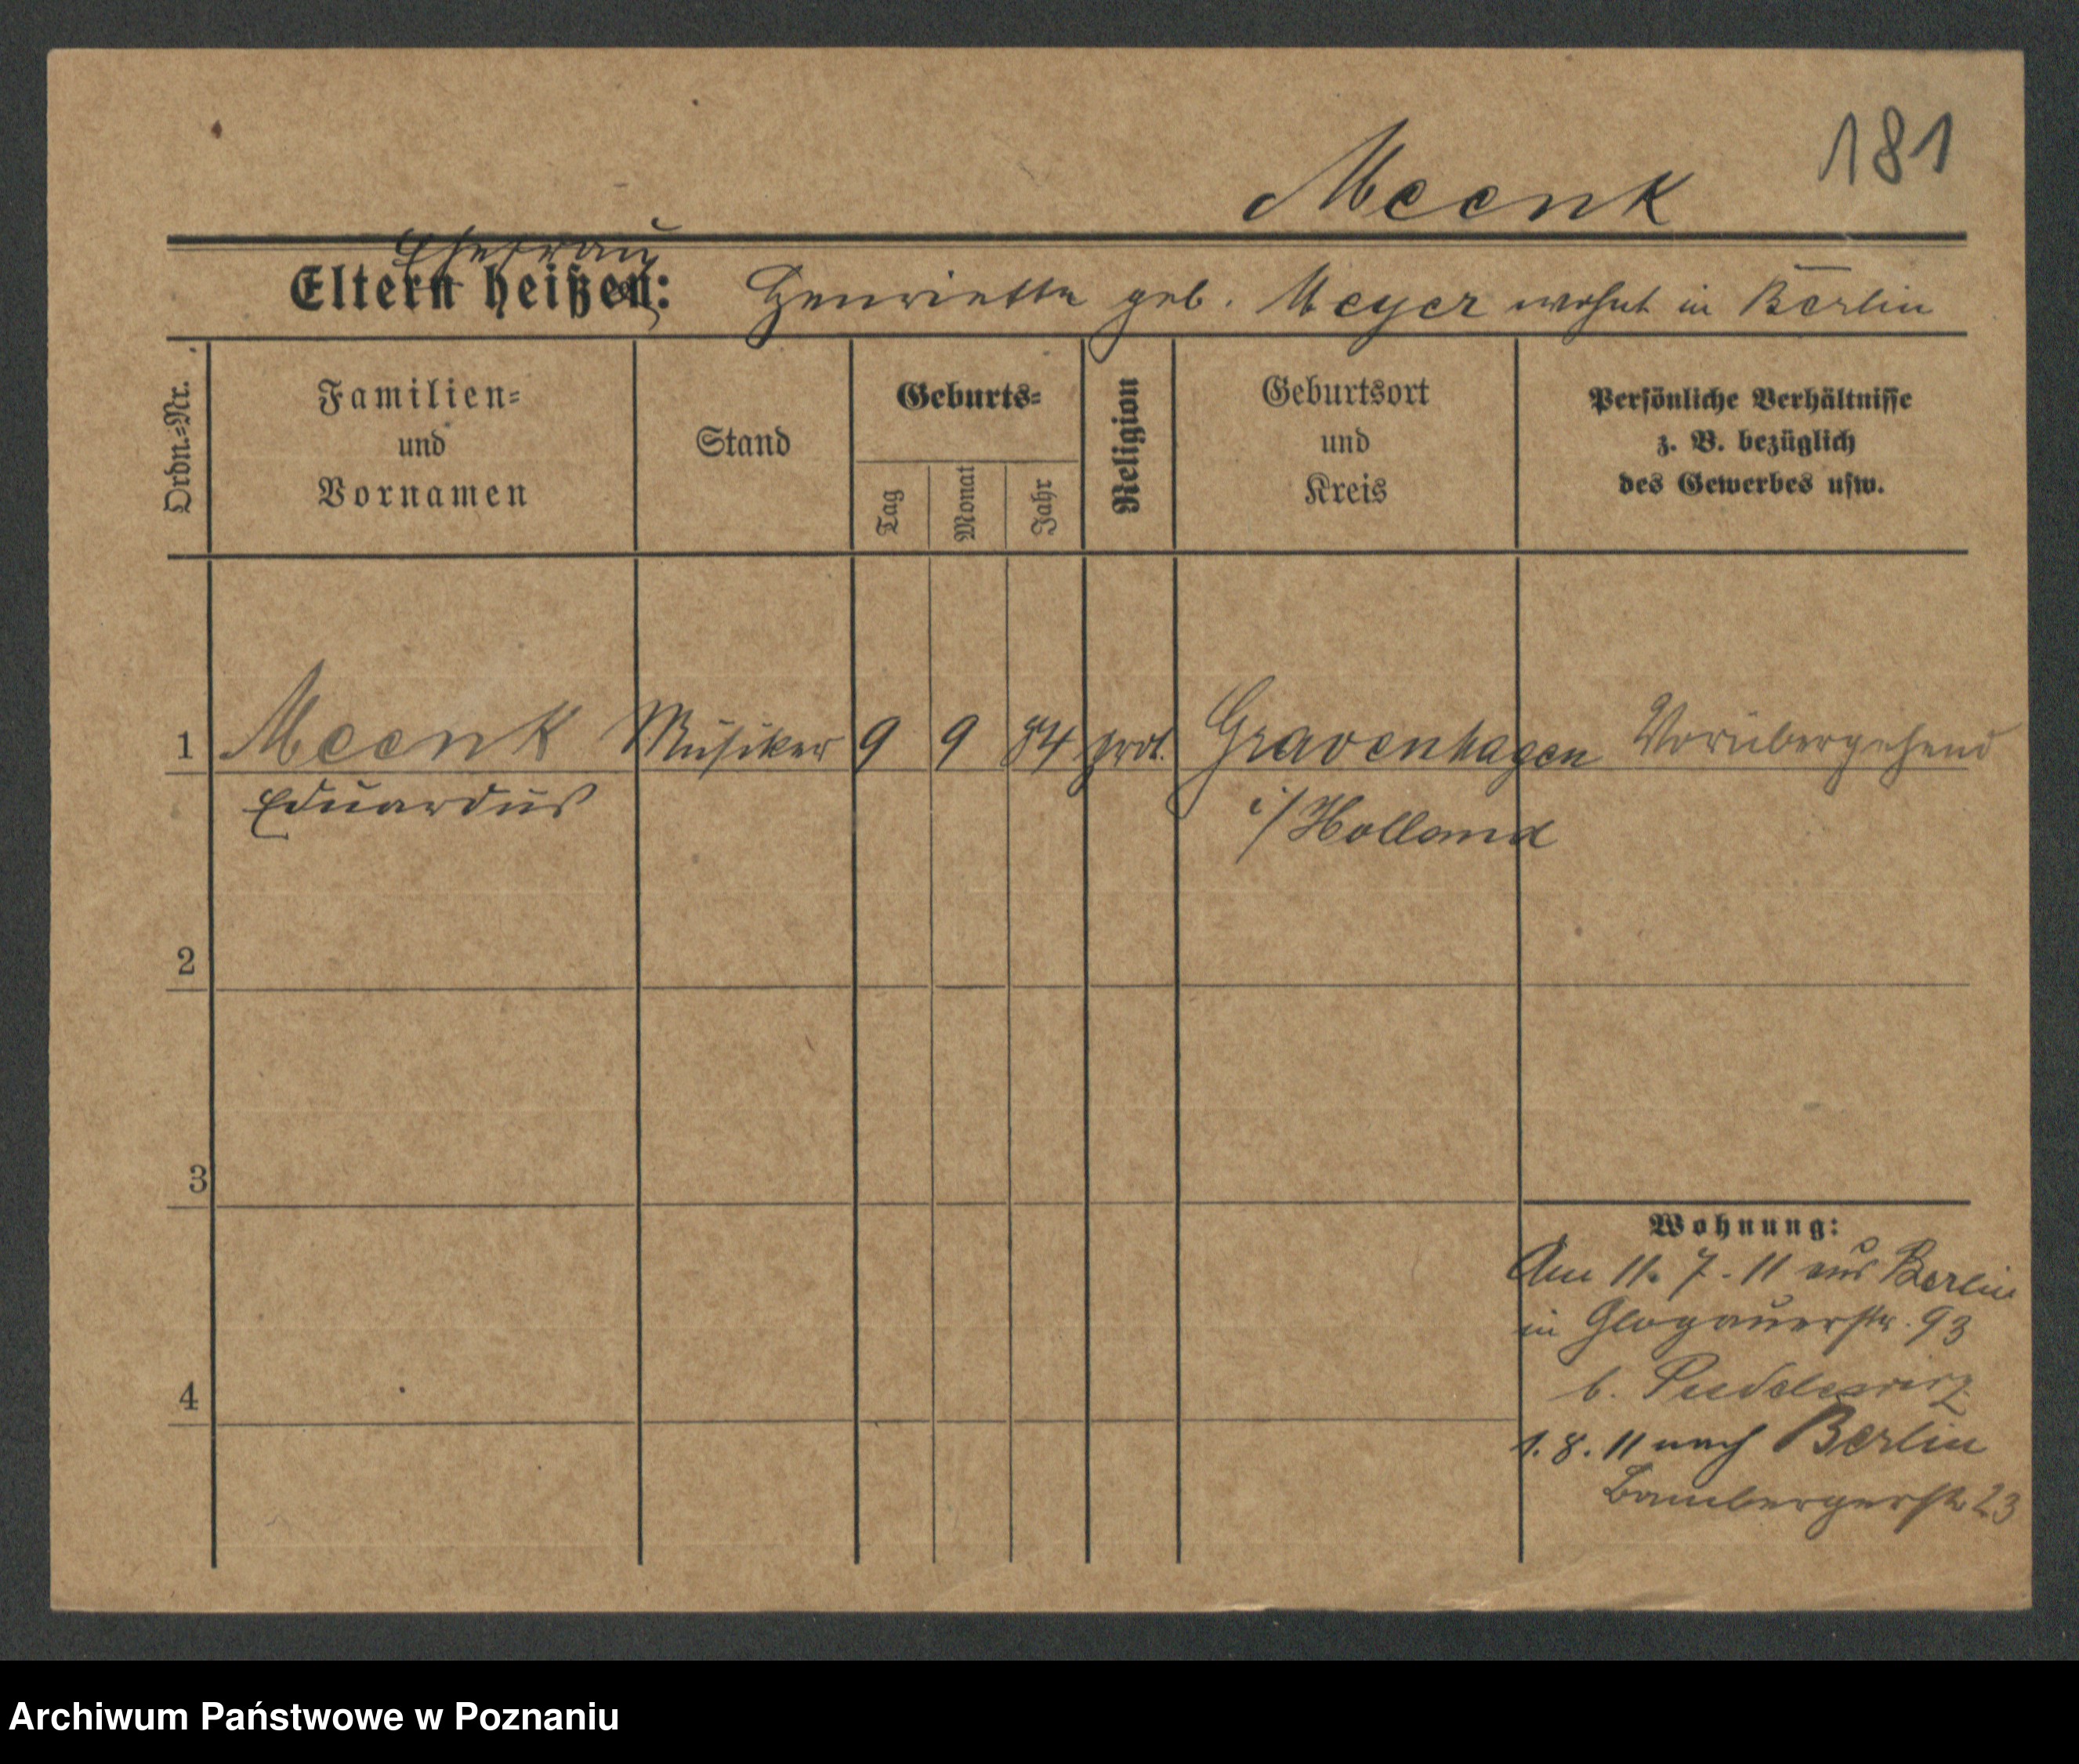 181
Meenk
Ehefrau
Eltern heißen: Henriette geb. Meyer wohnt in Berlin
Ordn.=Nr.
Familien=
und
Vornamen
Stand
Geburts=
Tag
Monat
Jahr
Religion
Geburtsort
und
Kreis
Persönliche Verhältnisse
z. B. bezüglich
des Gewerbes usw.
1 Meenk Musiker 9 9 84 prot. Gravenhagen Vorübergehend
Eduardus i/Holland
2
3
4
Wohnung:
Am 11. 7. 11 aus Berlin
in Glogauerstr. 93
b.
1. 8. 11 nach Berlin
Bambergerstr 23
Archiwum Państwowe w Poznaniu